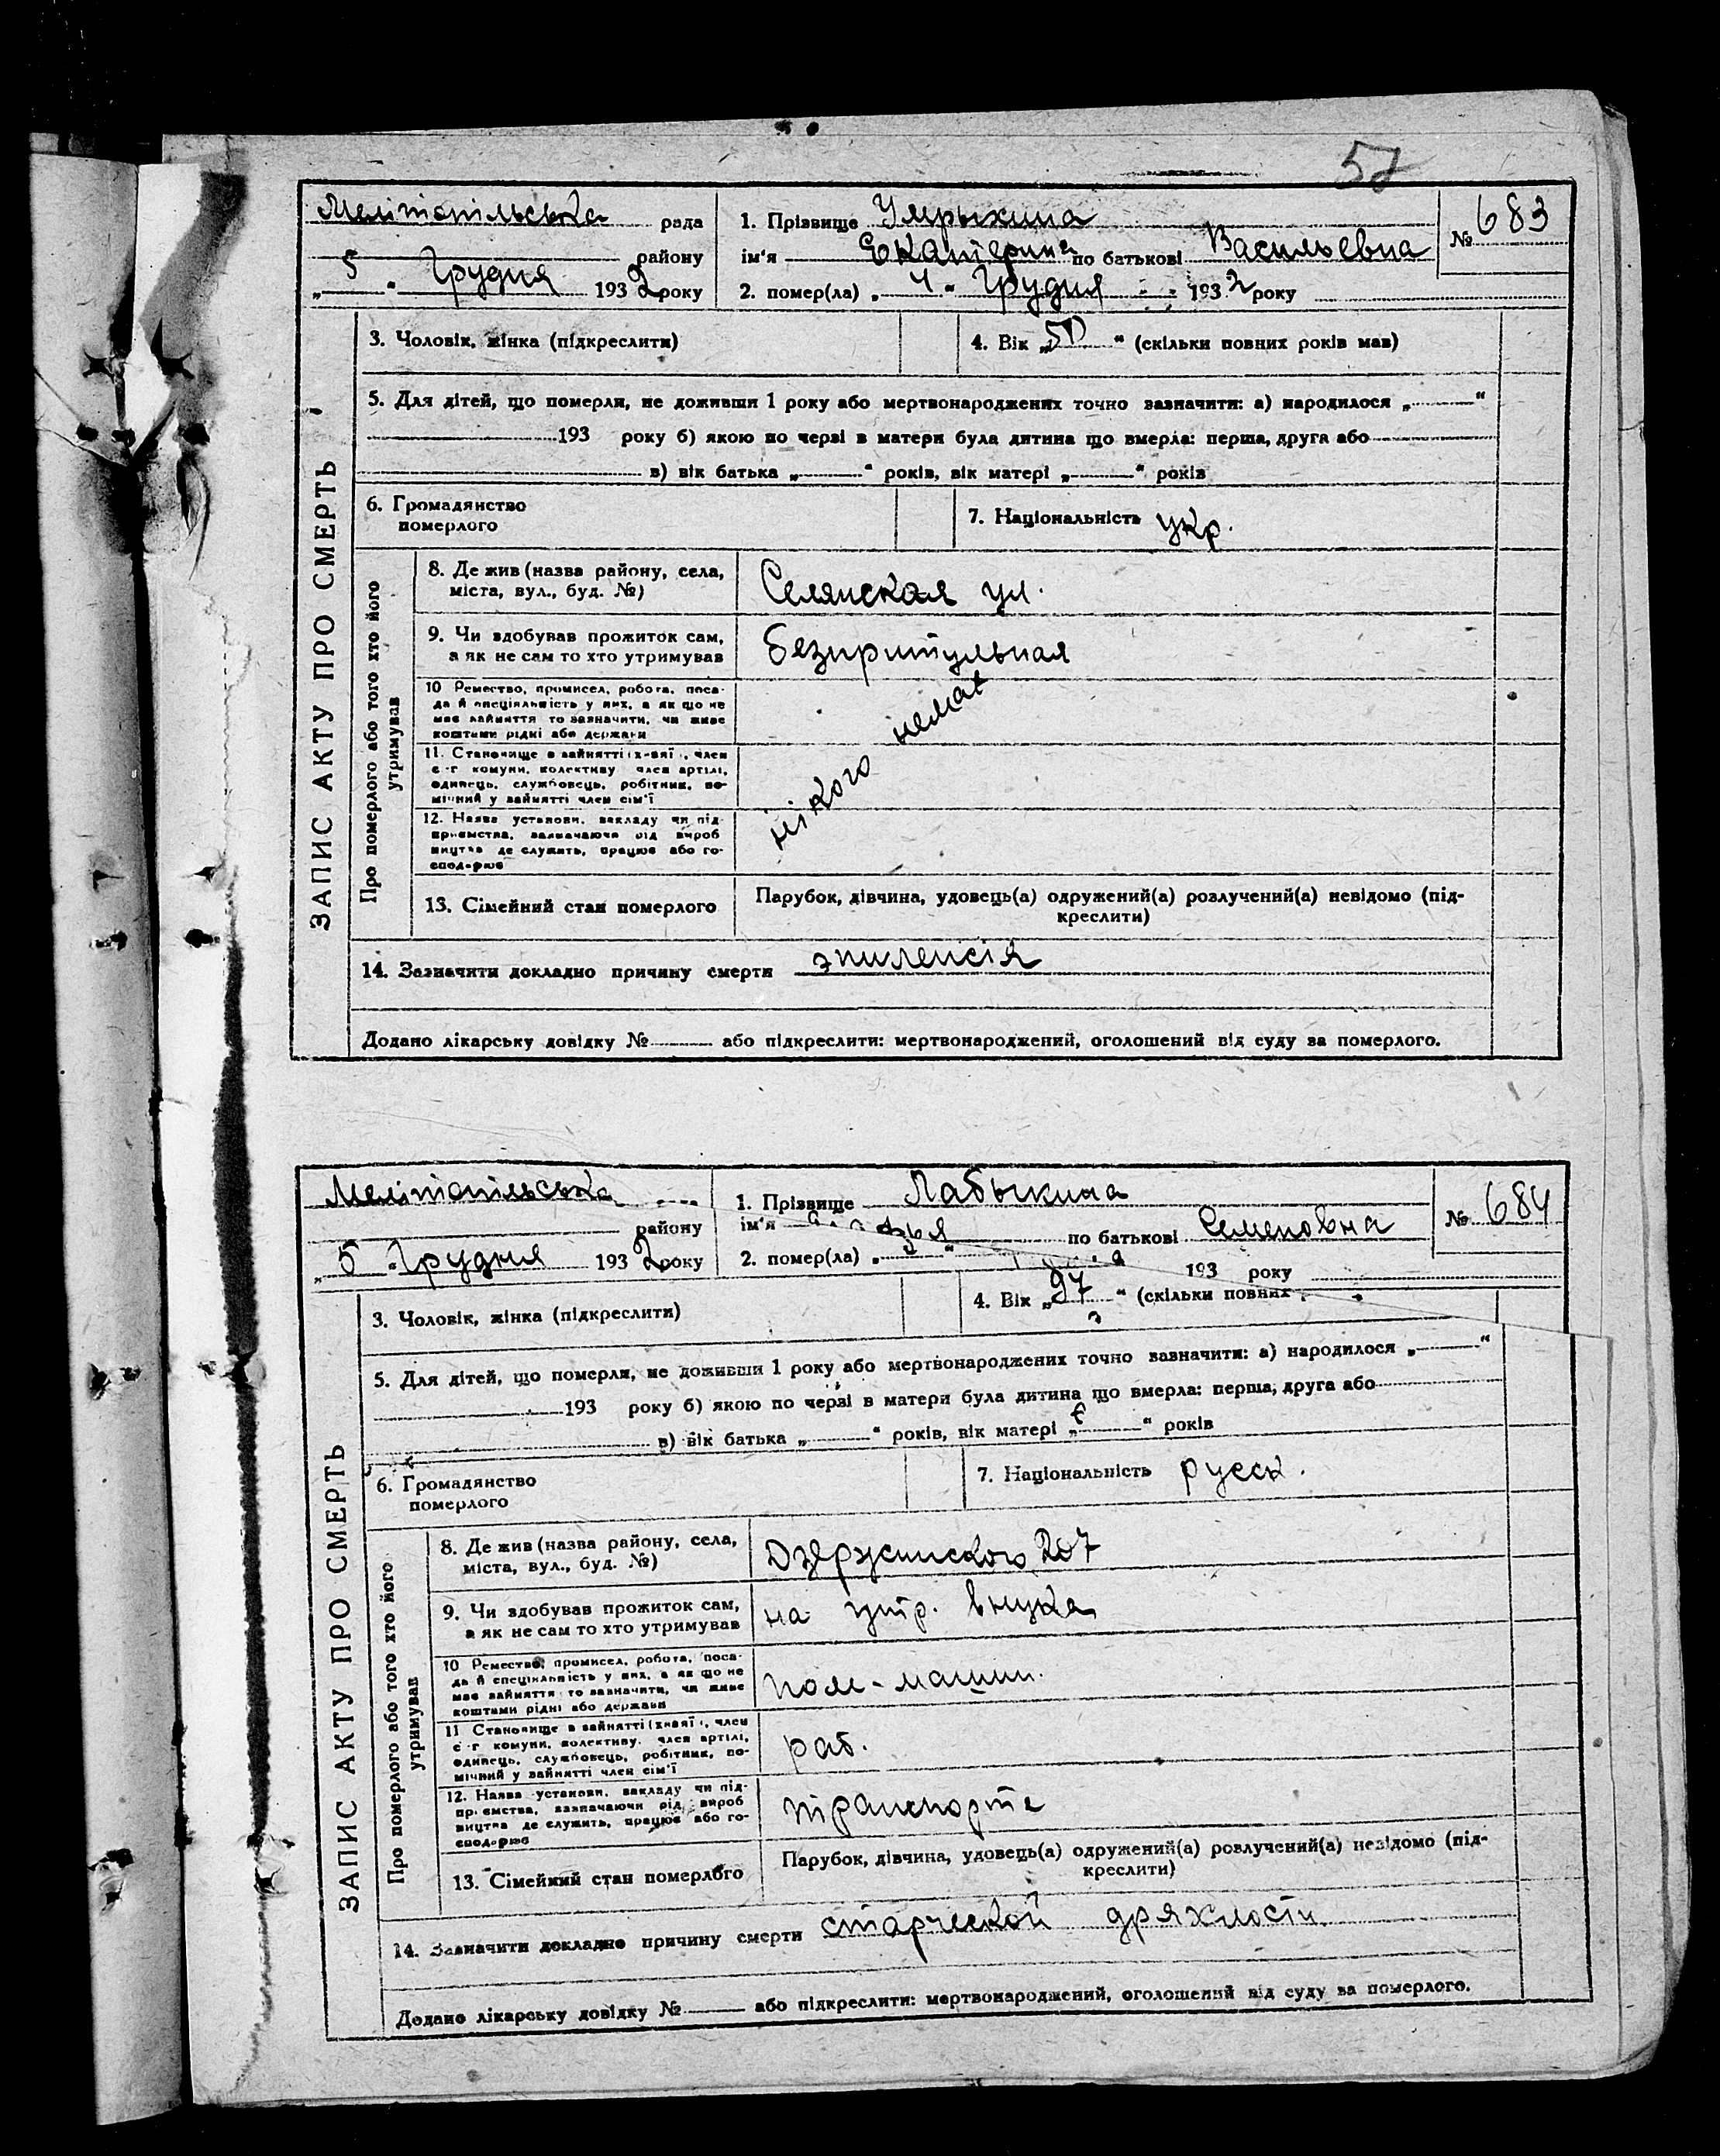 57
Мелітопільська рада
району
„ 5 " Грудня 1932 року
1. Прізвище Умрыхина
ім'я Екатерина по батькові Васильевна
2. помер(ла) „ 4 " Грудня 1932 року
№ 683
ЗАПИС АКТУ ПРО СМЕРТЬ
3. Чоловік, жінка (підкреслити)
4. Вік „ 50 " (скільки повних років мав)
5. Для дітей, що померли, не доживши 1 року або мертвонароджених точно зазначити: а) народилося „ "
193 року б) якою по черзі в матери була дитина що вмерла: перша, друга або
в) вік батька „ " років, вік матері „ " років
6. Громадянство
померлого
7. Національність укр.
Про померлого або того хто його
утримував
8. Де жив (назва району, села,
міста, вул., буд. №)
Селянская ул.
9. Чи здобував прожиток сам,
а як не сам то хто утримував
безпритульная
10 Ремество, промисел, робота, поса-
да й спеціяльність у них, а як що не
має зайняття то зазначити, чи живе
коштами рідні або держави
11. Становище в зайнятті (хазяї, член
с-г комуни, колективу член артілі,
одинець, службовець, робітник, по-
мічний у зайнятті член сім'ї
12. Назва установи, закладу чи під-
приємства, зазначаючи рід вироб
ництва де служить, працює або го-
сподарює
нікого немає
13. Сімейний стан померлого
Парубок, дівчина, удовець(а) одружений(а) розлучений(а) невідомо (під-
креслити)
14. Зазначити докладно причину смерти эпилепсія
Додано лікарську довідку № або підкреслити: мертвонароджений, оголошений від суду за померлого.
Мелітопільська
району
„ 5 " Грудня 1932 року
1. Прізвище Лабыкина
ім'я по батькові Семеновна
2. помер(ла) „ " 193 року
№ 684
ЗАПИС АКТУ ПРО СМЕРТЬ
3. Чоловік, жінка (підкреслити)
4. Вік „ 97 " (скільки повних
5. Для дітей, що померли, не доживши 1 року або мертвонароджених точно зазначити: а) народилося „ "
193 року б) якою по черзі в матери була дитина що вмерла: перша, друга або
в) вік батька „ " років, вік матері „ " років
6. Громадянство
померлого
7. Національність русск.
Про померлого або того хто його
утримував
8. Де жив (назва району, села,
міста, вул., буд. №)
Дзержинского 207
9. Чи здобував прожиток сам,
а як не сам то хто утримував
на утр. внука
10 Ремество, промисел, робота, поса-
да й спеціяльність у них, а як що не
має зайняття то зазначити, чи живе
коштами рідні або держави
пом-машин.
11 Становище в зайнятті (хазяї, член
с-г комуни, колективу, член артілі,
одинець, службовець, робітник, по-
мічний у зайнятті член сім'ї
раб.
12. Назва установи, закладу чи під-
приємства, зазначаючи рід вироб
ництва де служить, працює або го-
сподарює
транспорте
13. Сімейний стан померлого
Парубок, дівчина, удовець(а) одружений(а) розлучений(а) невідомо (під-
креслити)
14. Зазначити докладно причину смерти старческой дряхлости
Додано лікарську довідку № або підкреслити: мертвонароджений, оголошений від суду за померлого.